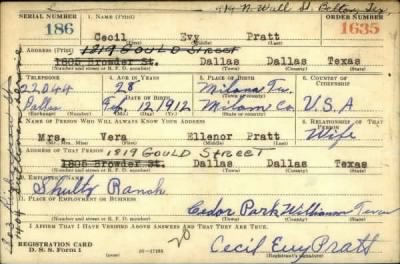 919 N. Wall St. Belton, Tex.
SERIAL NUMBER 1. NAME (Print) ORDER NUMBER
186 Cecil Evy Pratt 1635
(First) (Middle) (Last)
2. ADDRESS (Print) 1219 GOULD STREET
1805 Browder St. Dallas Dallas Texas
(Number and street or R. F. D. number) (Town) (County) (State)
3. TELEPHONE 4. AGE IN YEARS 5. PLACE OF BIRTH 6. COUNTRY OF CITIZENSHIP
22044 28 Milano Tex.
DATE OF BIRTH
Dallas Feb. 12 1912 Milam Co. U.S.A
(Exchange) (Number) (Mo.) (Day) (Yr.) (Town or county) (State or country)
7. NAME OF PERSON WHO WILL ALWAYS KNOW YOUR ADDRESS 8. RELATIONSHIP OF THAT PERSON
Mrs. Vera Ellenor Pratt Wife
(Mr., Mrs., Miss) (First) (Middle) (Last)
9. ADDRESS OF THAT PERSON 1219 GOULD STREET
1805 Browder St. Dallas Dallas Texas
(Number and street or R. F. D. number) (Town) (County) (State)
10. EMPLOYER'S NAME
Shultz Ranch
11. PLACE OF EMPLOYMENT OR BUSINESS
Cedar Park Williamson Texas
(Number and street or R. F. D. number) (Town) (County) (State)
I AFFIRM THAT I HAVE VERIFIED ABOVE ANSWERS AND THAT THEY ARE TRUE.
REGISTRATION CARD
D. S. S. Form 1
Cecil Evy Pratt